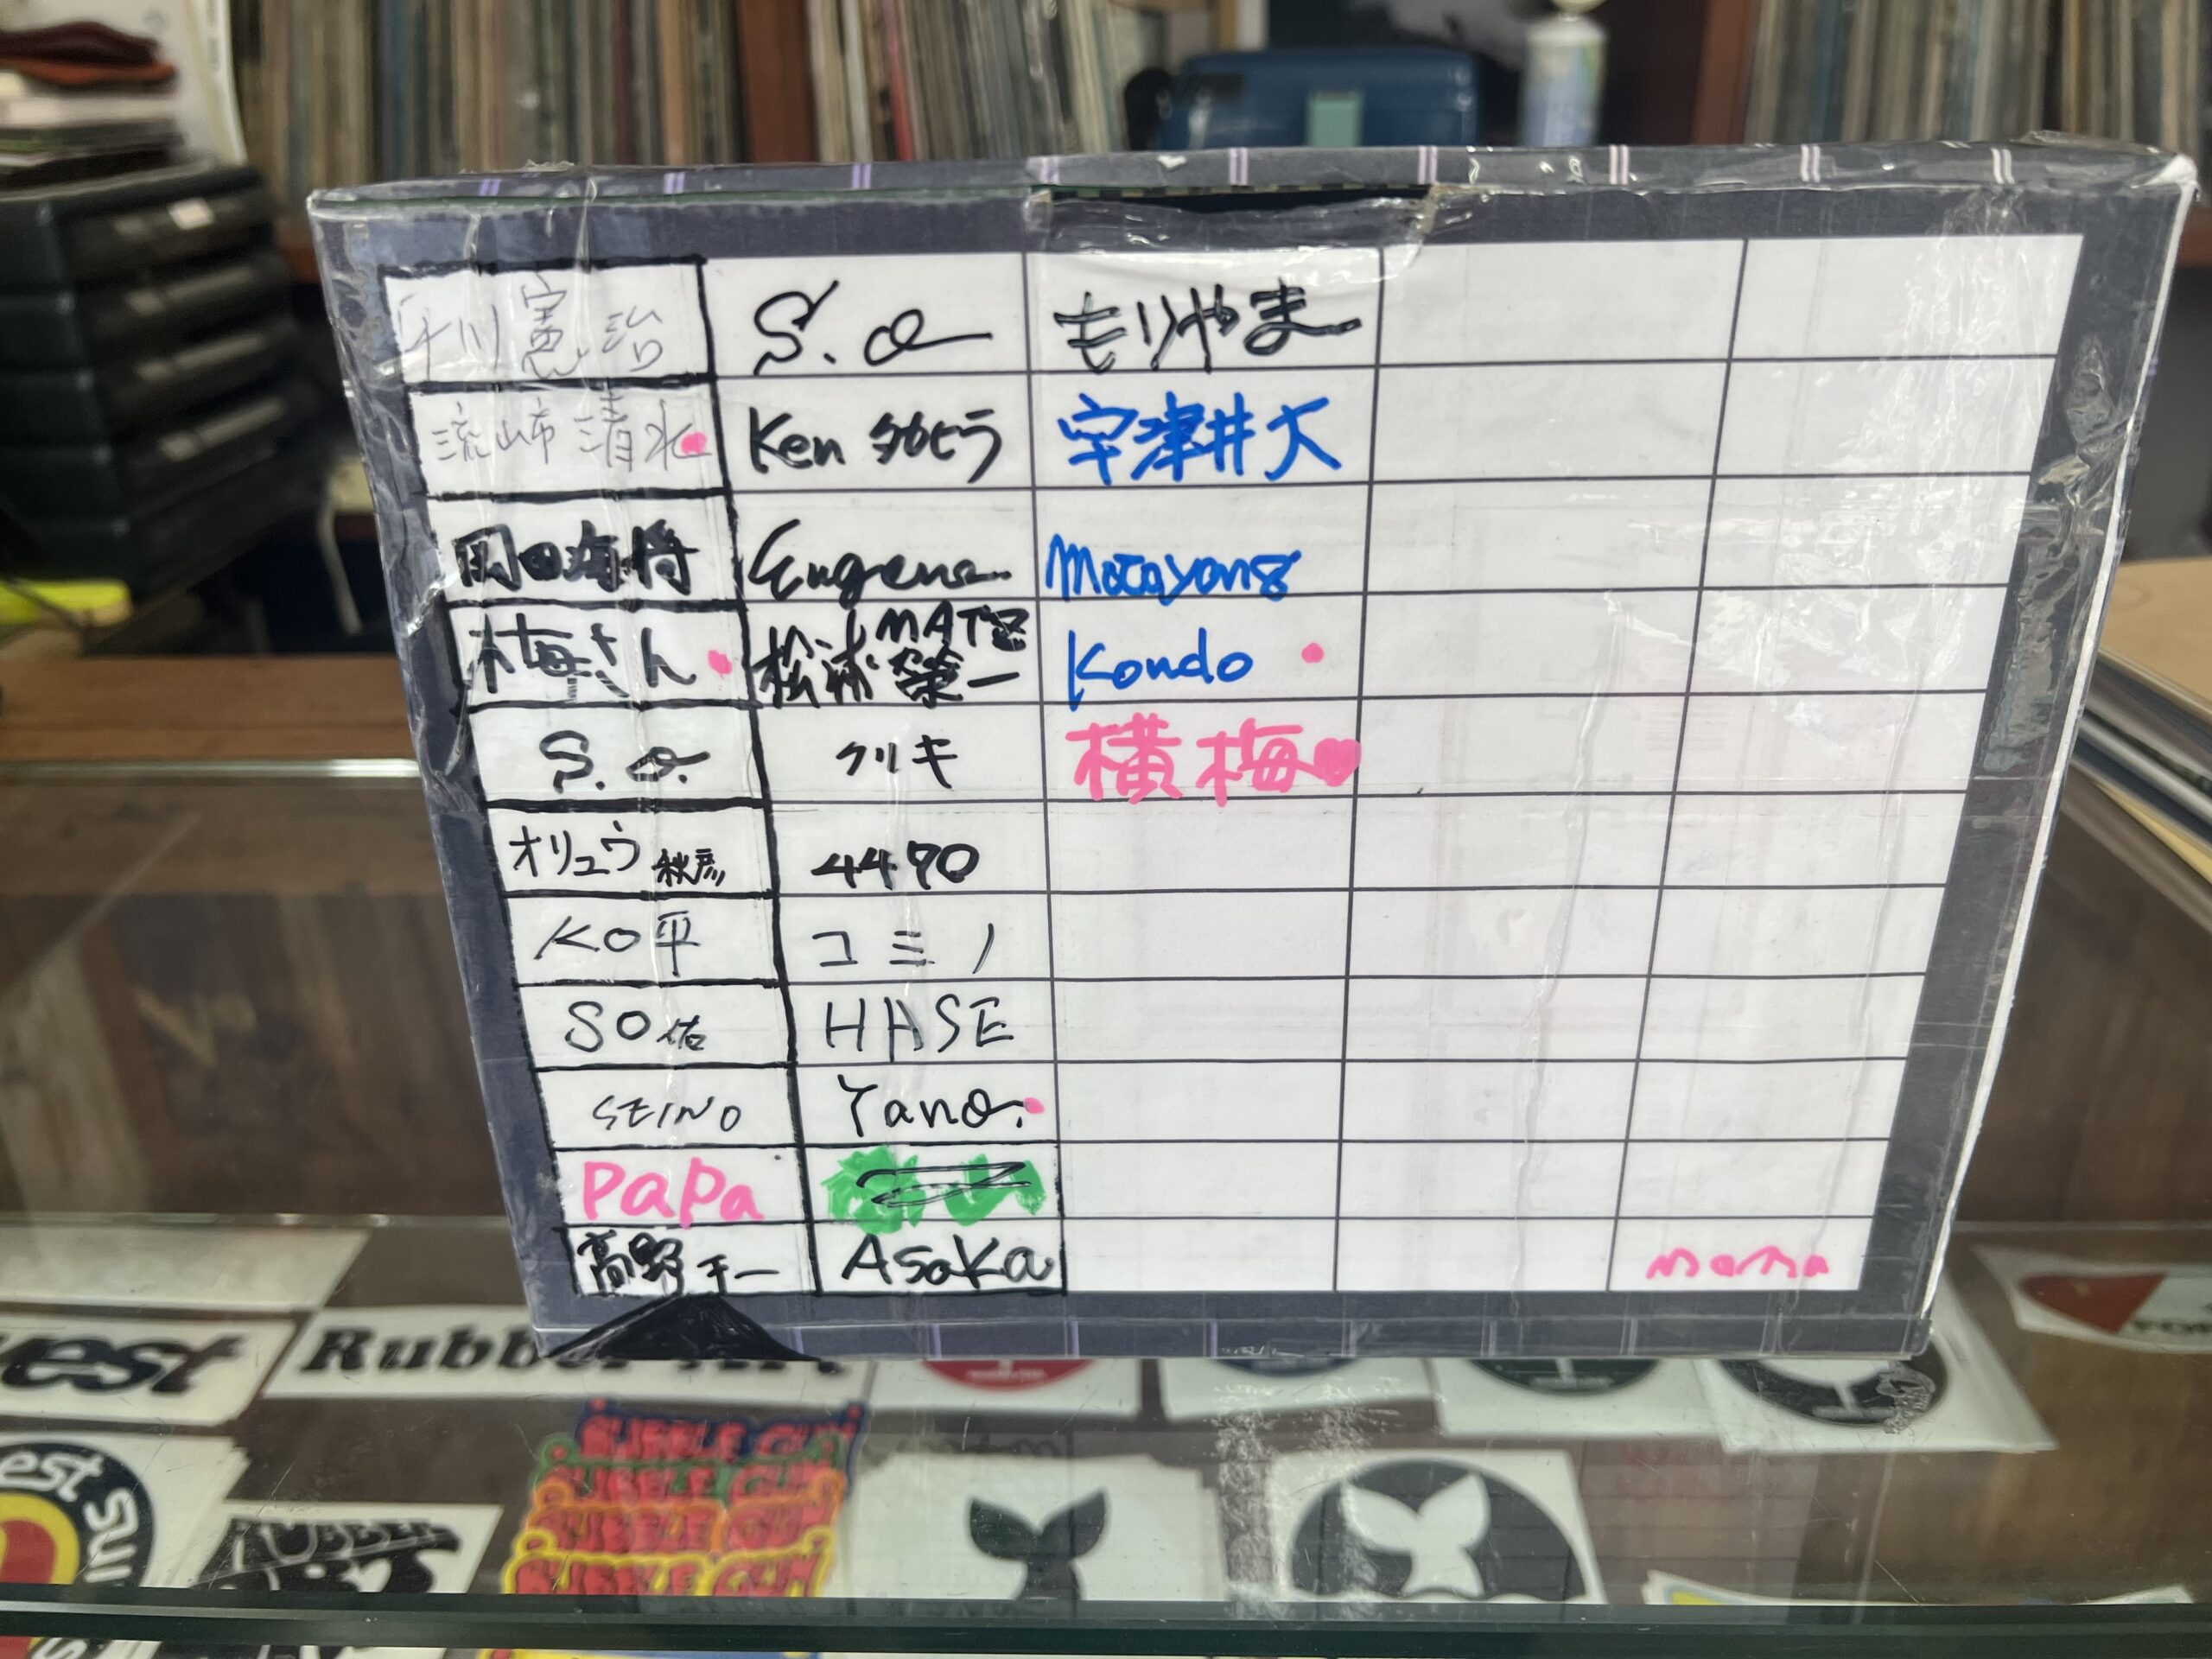 S.
もりやま
流崎清水
Ken タカヒラ
宇津井大
岡田海将
Eugene
梅さん
MAT
松浦 榮一
Kondo
S.
クリキ
横梅
オリュウ 秋彦
4470
KO平
コミノ
SO佑
HASE
SEINO
Yano.
PaPa
高野
Asaka
mama
est
Rubber
BUBBLE GUM
BUBBLE GUM
BUBBLE GUM
BUBBLE GUM
est
RUBBER